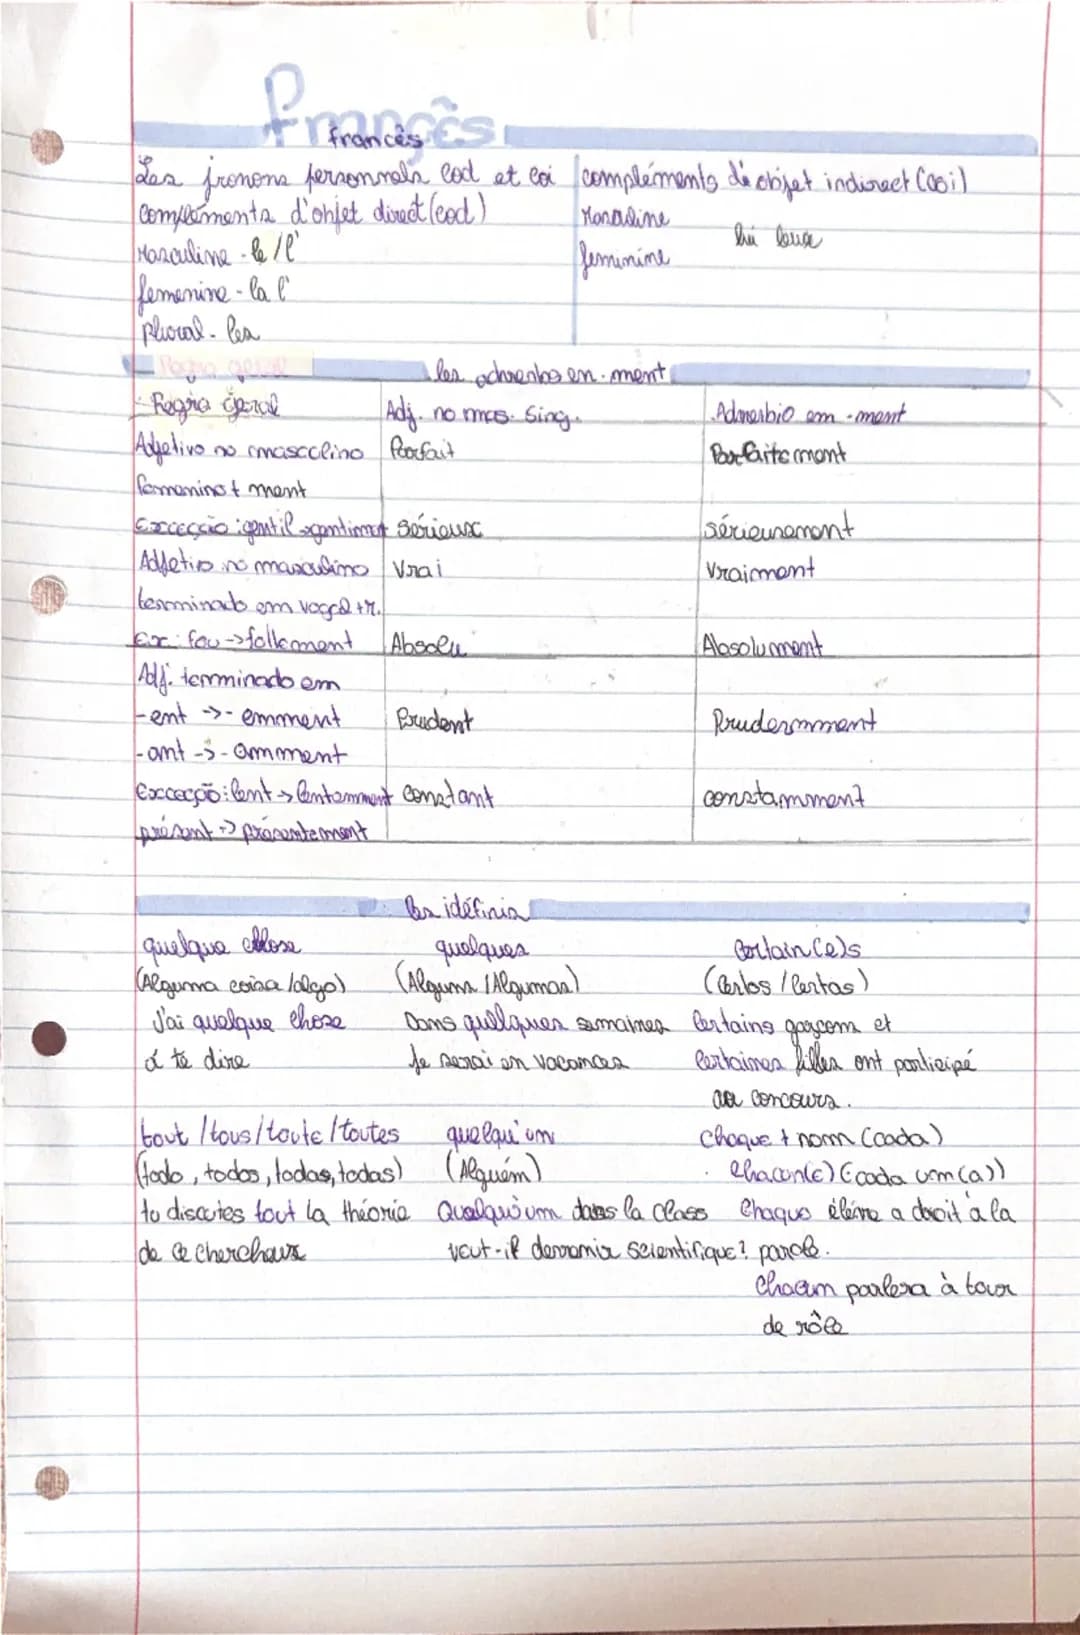 Francês
francês
Les pronons personnals cod et coi
compléments d'objet direct (cod)
Masculine - le / l'
femenine - la l'
plural - les
compléments d'objet indirect (coi)
Masculine
feminine
lui leur
Regra geral
les adverbes en -ment
Regra geral
Adj. no mas. Sing.
Adverbio em -ment
Adjetivo no masculino
Parfait
Parfaitement
femenino + ment
Excecção: gentil → gentiment
Sérieux
sérieusement
Adjetivo no masculino
Vrai
Vraiment
terminado em vogal + m.
Ex: fou → follement
Absolu
Absolument
Adj. terminado em
-ent → -emment
Prudent
Prudemment
-ant → -amment
Excecção: lent → lentemment
constant
constamment
présent → présentement
les idéfinis
quelque chose
quelques
Certain(e)s
(Alguma coisa / algo)
(Alguns / Algumas)
(Certos / Certas)
J'ai quelque chose
Dans quelques semaines
Certains garçons et
à te dire
je serai en vacances
Certaines filles ont participé
au concours.
tout / tous / toute / toutes
quelqu'un
Chaque + nom (cada)
(todo, todos, todas, todas)
(Alguém)
Chacun(e) (cada um(a))
tu discutes tout la théorie
Quelqu'un dans la class
Chaque élève a droit à la
de ce chercheur
veut-il devenir scientifique?
parole.
Chacun parlera à tour
de rôle